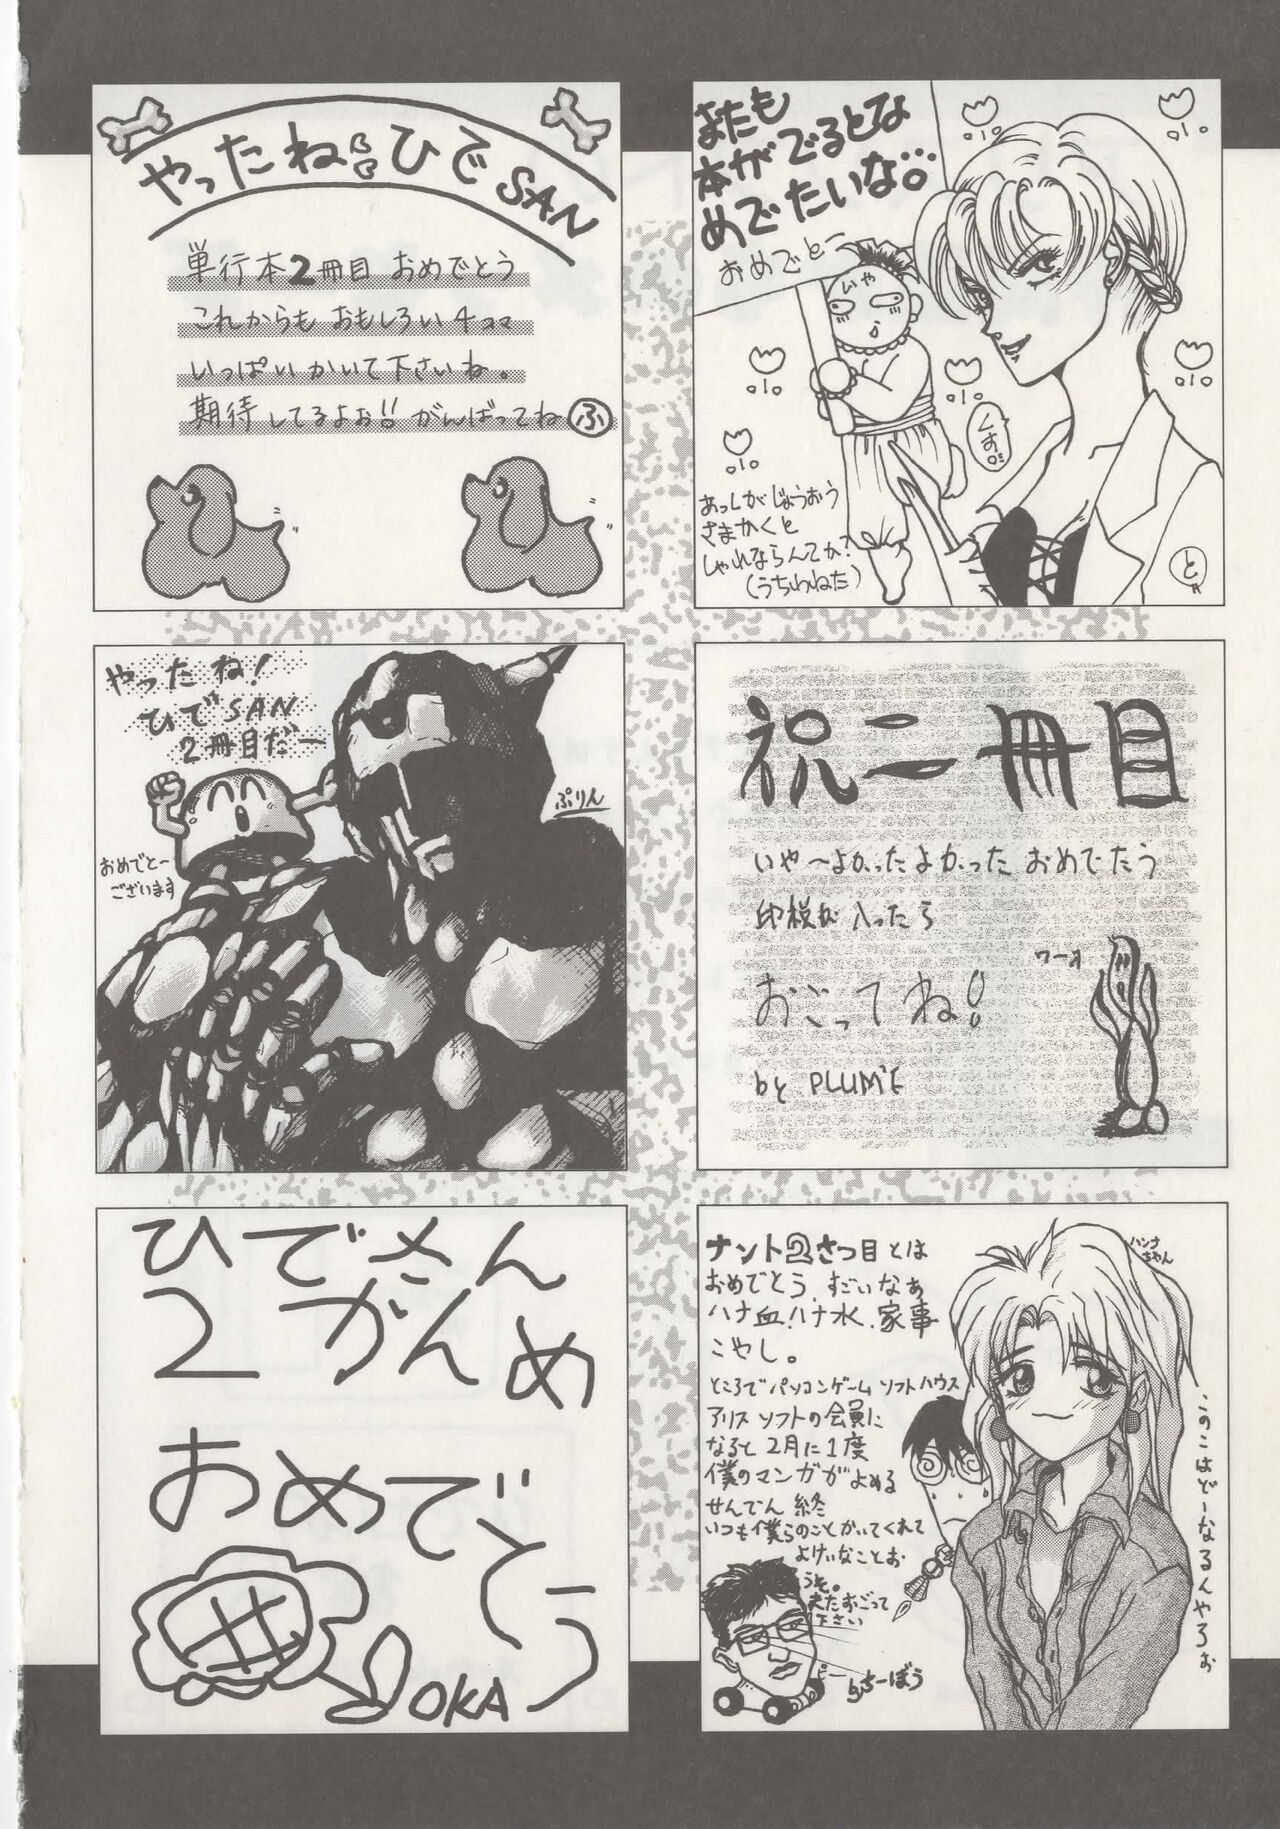 やったね!!ひでSAN
単行本2冊目 おめでとう
これからも おもしろい4コマ
いっぱいかいて下さいね。
期待してるよぉ!! がんばってね ふ
またも
本がでるとな
めでたいな。
おめでとー
いや
くす。
あっしがじょうおう
さまかくと
しゃれならんてか?
(うちわねた)
と
やったね!
ひでSAN
2冊目だー
ぷりん
おめでとー
ございます
祝二冊目
いや〜よかったよかった おめでたう
印税が入ったら
おごってね!
ワーオ
by PLUME
ひでさん
2かんめ
おめでとう
OKA
ナント2さつ目とは
おめでとう、すごいなぁ
ハナ血!ハナ水、家事
こやし。
ところでパソコンゲームソフトハウス
アリスソフトの会員に
なると2月に1度
僕のマンガがよめる
せんでん 終
いつも僕らのことかいてくれて
よけいなことお
うそ。
またおごって
下さい
ハンナ
ちゃん
このこはどーなるんやろぉ